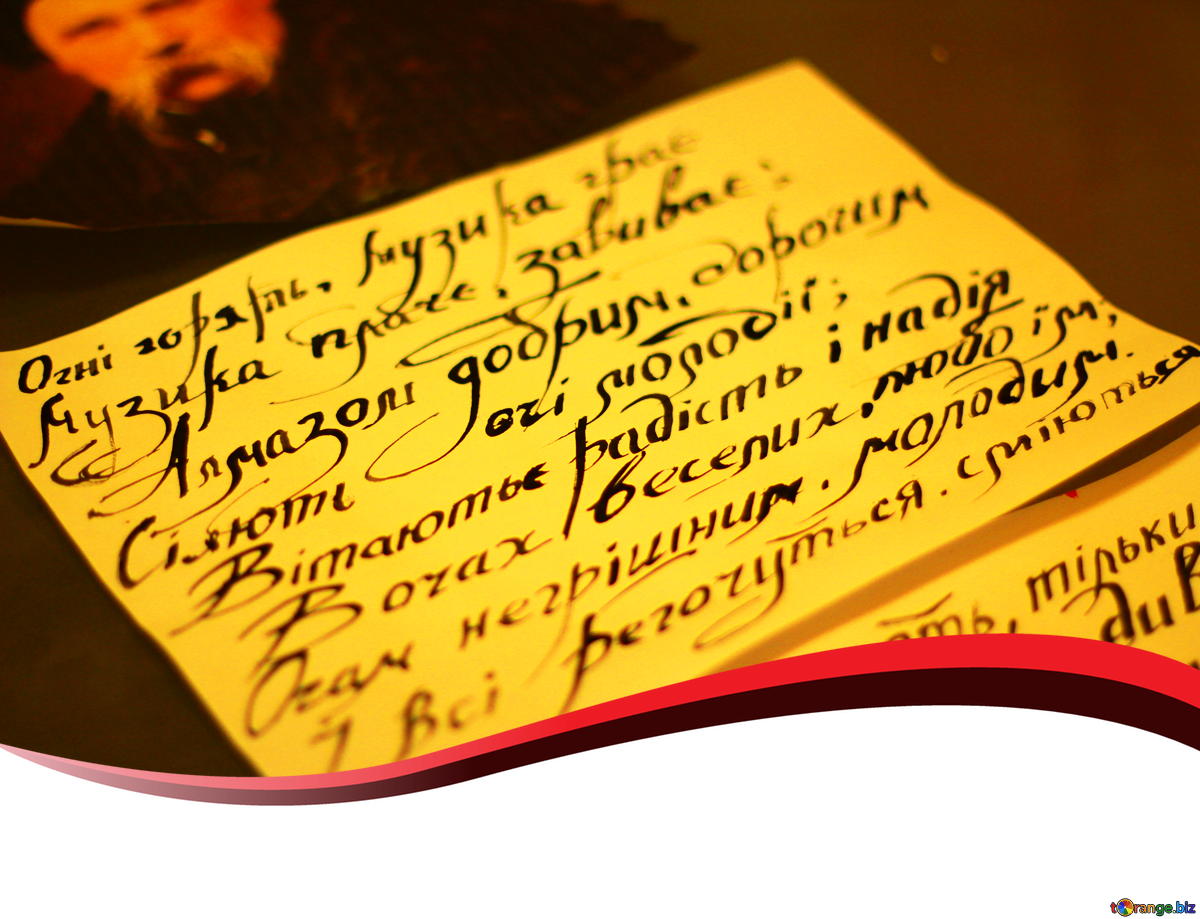 Огні горять, музика грає
Музика плаче, завиває;
Алмазом добрим, дорогим
Сіяють очі молодії;
Вітаютьє радість і надія
В очах веселих, любо їм,
Очам негрішним, молодим.
І всі регочуться, сміються
тільки
див
torange.biz